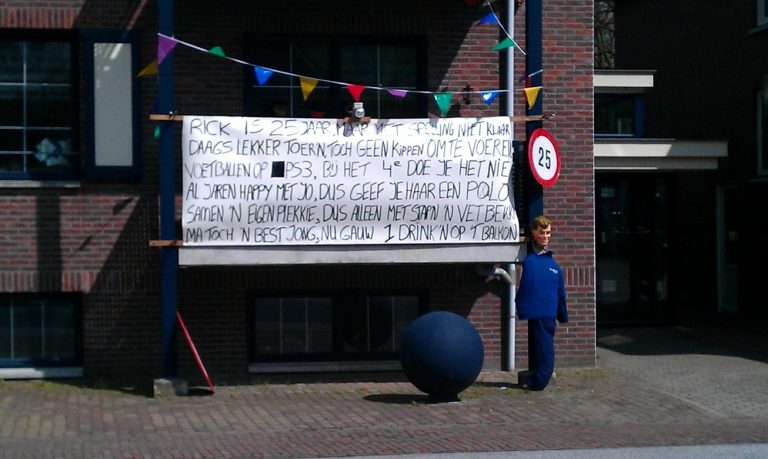 RICK IS 25 JAAR, MAAR MET SPELLING NIET KLAAR
DAAGS LEKKER TOERN, TOCH GEEN KIPPEN OM TE VOEREN
VOETBALLEN OP PS3, BIJ HET 4e DOE JE HET NIE
AL JAREN HAPPY MET JO, DUS GEEF JE HAAR EEN POLO
SAMEN 'N EIGEN PLEKKIE, DUS ALLEEN MET STAPN 'N VET
MA TOCH 'N BEST JONG, NU GAUW 1 DRINK'N OP 'T BALKON
25